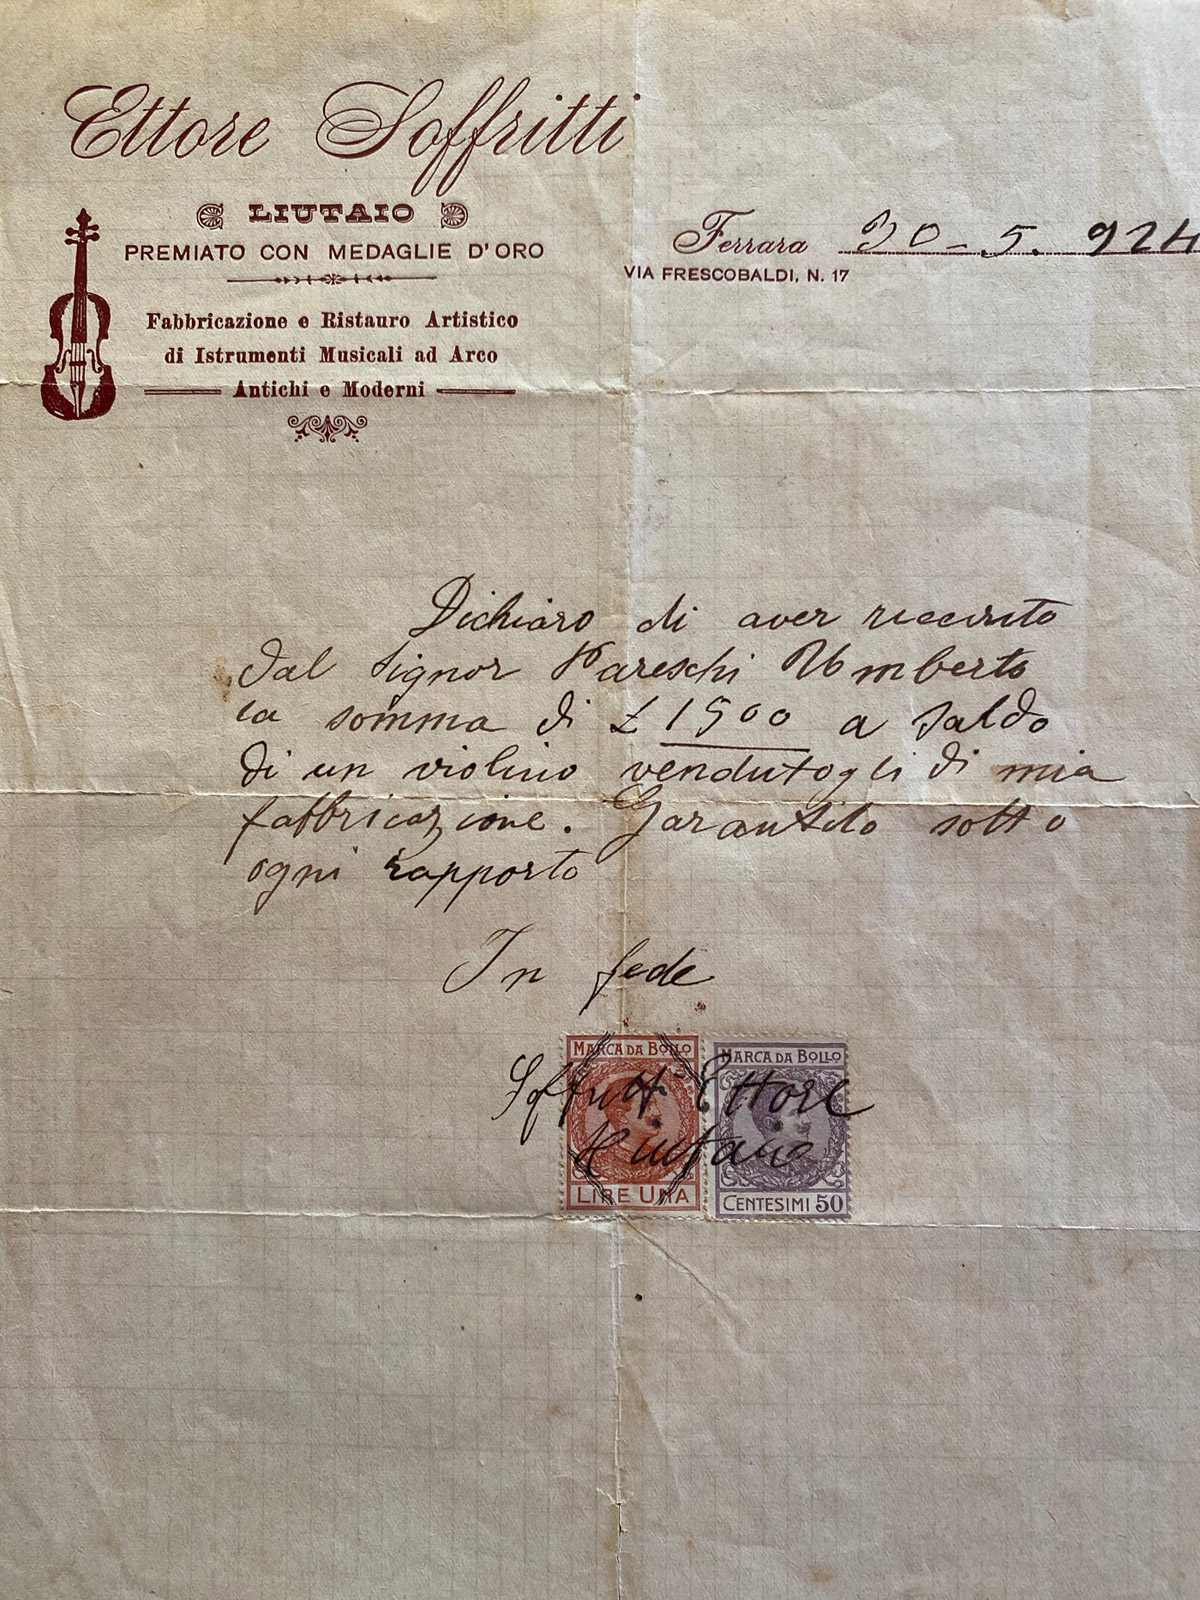 Ettore Soffritti
LIUTAIO
PREMIATO CON MEDAGLIE D'ORO
Fabbricazione e Ristauro Artistico
di Istrumenti Musicali ad Arco
Antichi e Moderni
Ferrara 20-5. 924
VIA FRESCOBALDI, N. 17
Dichiaro di aver ricevuto
dal Signor Pareschi Umberto
la somma di £ 1500 a saldo
di un violino vendutogli di mia
fabbricazione. Garantito sotto
ogni rapporto
In fede
MARCA DA BOLLO MARCA DA BOLLO
Soffritti Ettore
Liutaio
LIRE UNA CENTESIMI 50